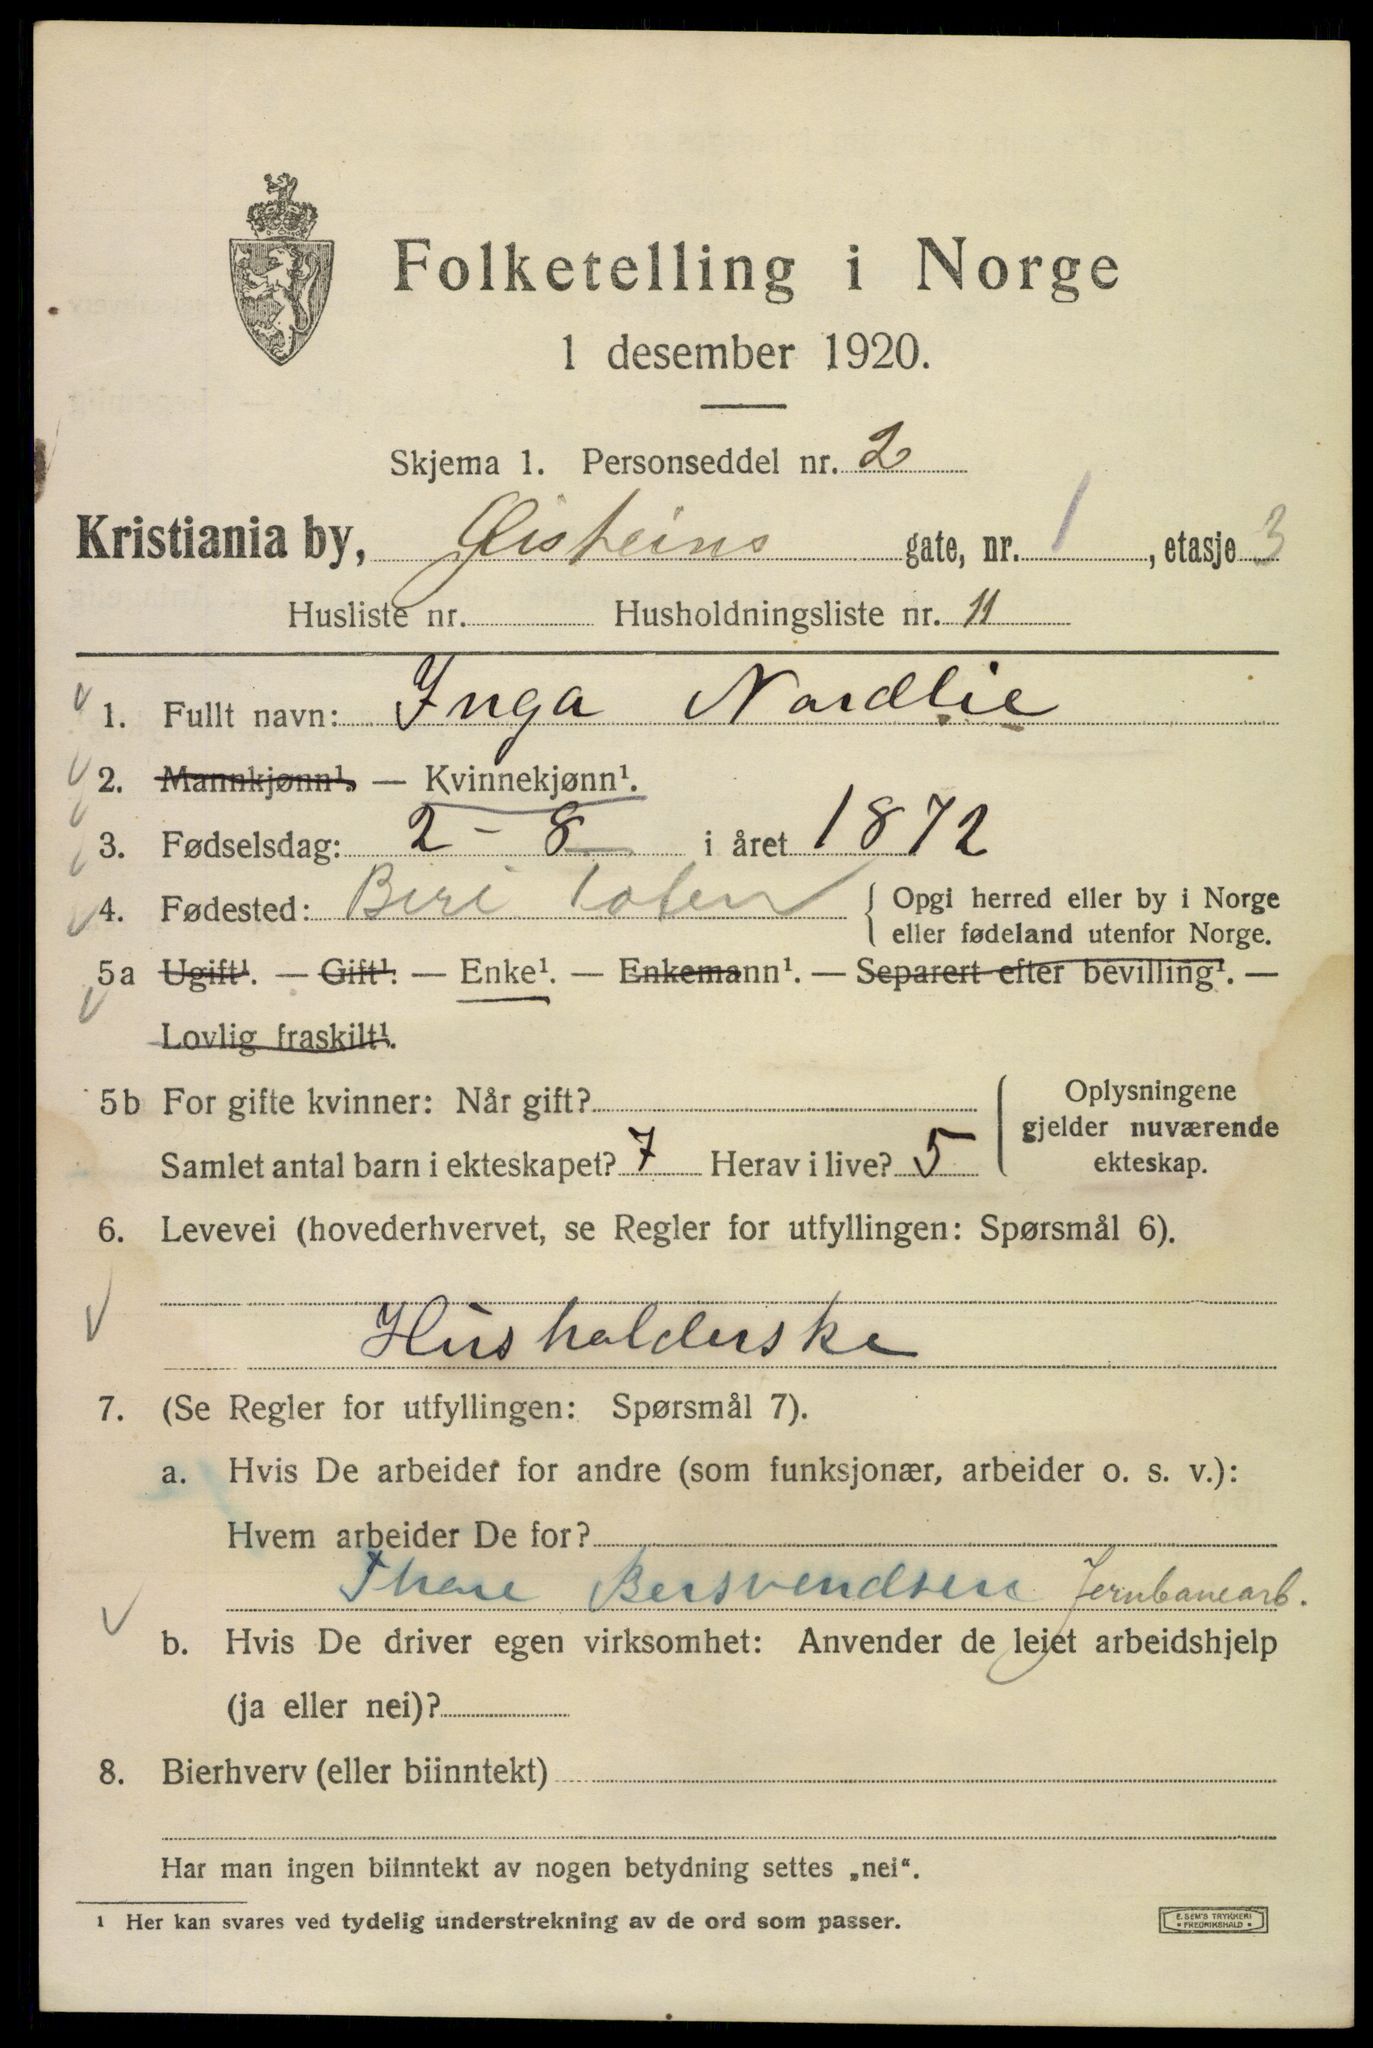 Folketelling i Norge
1 desember 1920.
Skjema 1. Personseddel nr. 2
Kristiania by, Øisteins gate, nr. 1, etasje 3
Husliste nr. Husholdningsliste nr. 11
1. Fullt navn: Inga Nordlie
2. Mannkjønn¹. — Kvinnekjønn¹.
3. Fødselsdag: 2 - 8 i året 1872
4. Fødested: Biri Toten { Opgi herred eller by i Norge
eller fødeland utenfor Norge.
5a Ugift¹. — Gift¹. — Enke¹. — Enkemann¹. — Separert efter bevilling¹. —
Lovlig fraskilt¹.
5b For gifte kvinner: Når gift? ( Oplysningene
gjelder nuværende
Samlet antal barn i ekteskapet? 7 Herav i live? 5 ekteskap.
6. Levevei (hovederhvervet, se Regler for utfyllingen: Spørsmål 6).
Husholderske
7. (Se Regler for utfyllingen: Spørsmål 7).
a. Hvis De arbeider for andre (som funksjonær, arbeider o. s. v.):
Hvem arbeider De for?
Thore Bersvendsen Jernbanearb.
b. Hvis De driver egen virksomhet: Anvender de leiet arbeidshjelp
(ja eller nei)?
8. Bierhverv (eller biinntekt)
Har man ingen biinntekt av nogen betydning settes „nei“.
¹ Her kan svares ved tydelig understrekning av de ord som passer.
E. SEM'S TRYKKERI
FREDRIKSHALD